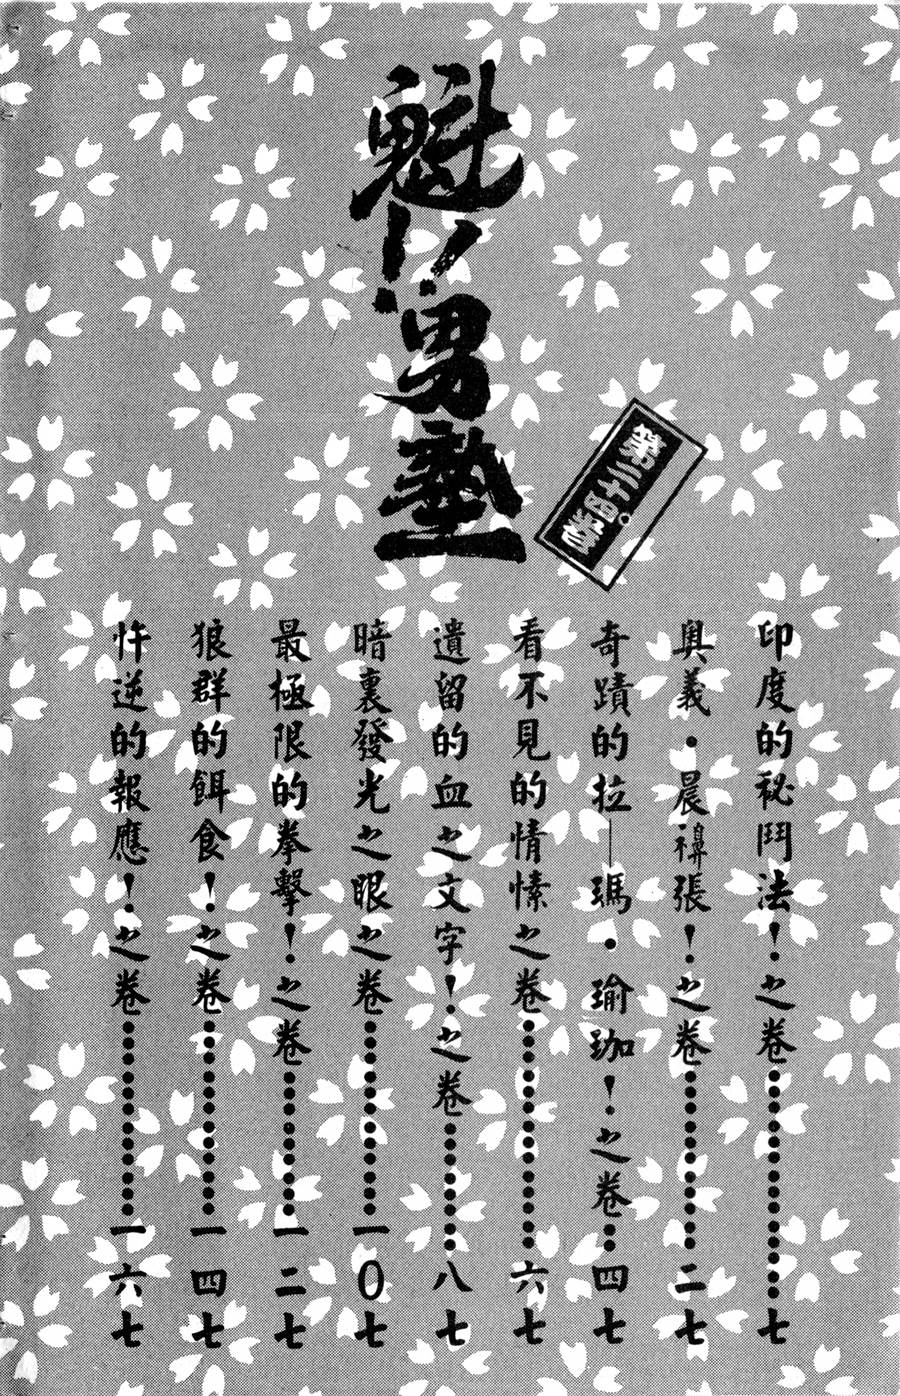 魁!!男塾
第二十四卷
印度的秘鬥法!之卷………七
奥義・晨禪張!之卷………二七
奇蹟的拉—瑪・瑜珈!之卷…四七
看不見的情愫之卷………六七
遺留的血之文字!之卷………八七
暗裏發光之眼之卷………一0七
最極限的拳擊!之卷………一二七
狼群的餌食!之卷………一四七
忤逆的報應!之卷………一六七